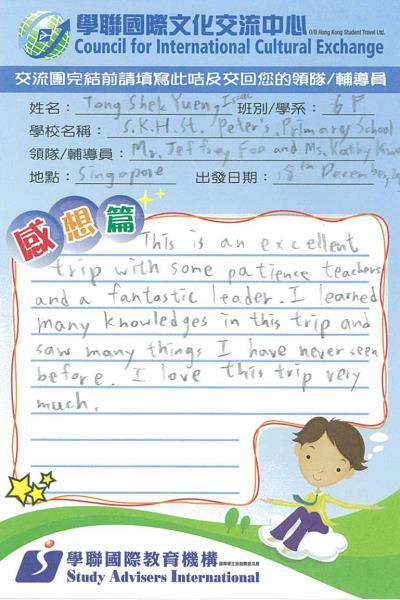 學聯國際文化交流中心
O/B Hong Kong Student Travel Ltd.
Council for International Cultural Exchange
交流團完結前請填寫此咭及交回您的領隊/輔導員
姓名: Tong Shek Yuen, Isaac 班別/學系: 6P
學校名稱: S.K.H.St. Peter's Primary School
領隊/輔導員: Mr. Jeffrey Foo and Ms. Kathy
地點: Singapore 出發日期: 18th December,
感想篇
This is an excellent
trip with some patience teachers
and a fantastic leader. I learned
many knowledges in this trip and
saw many things I have never seen
before. I love this trip very
much.
學聯國際教育機構
Study Advisers International